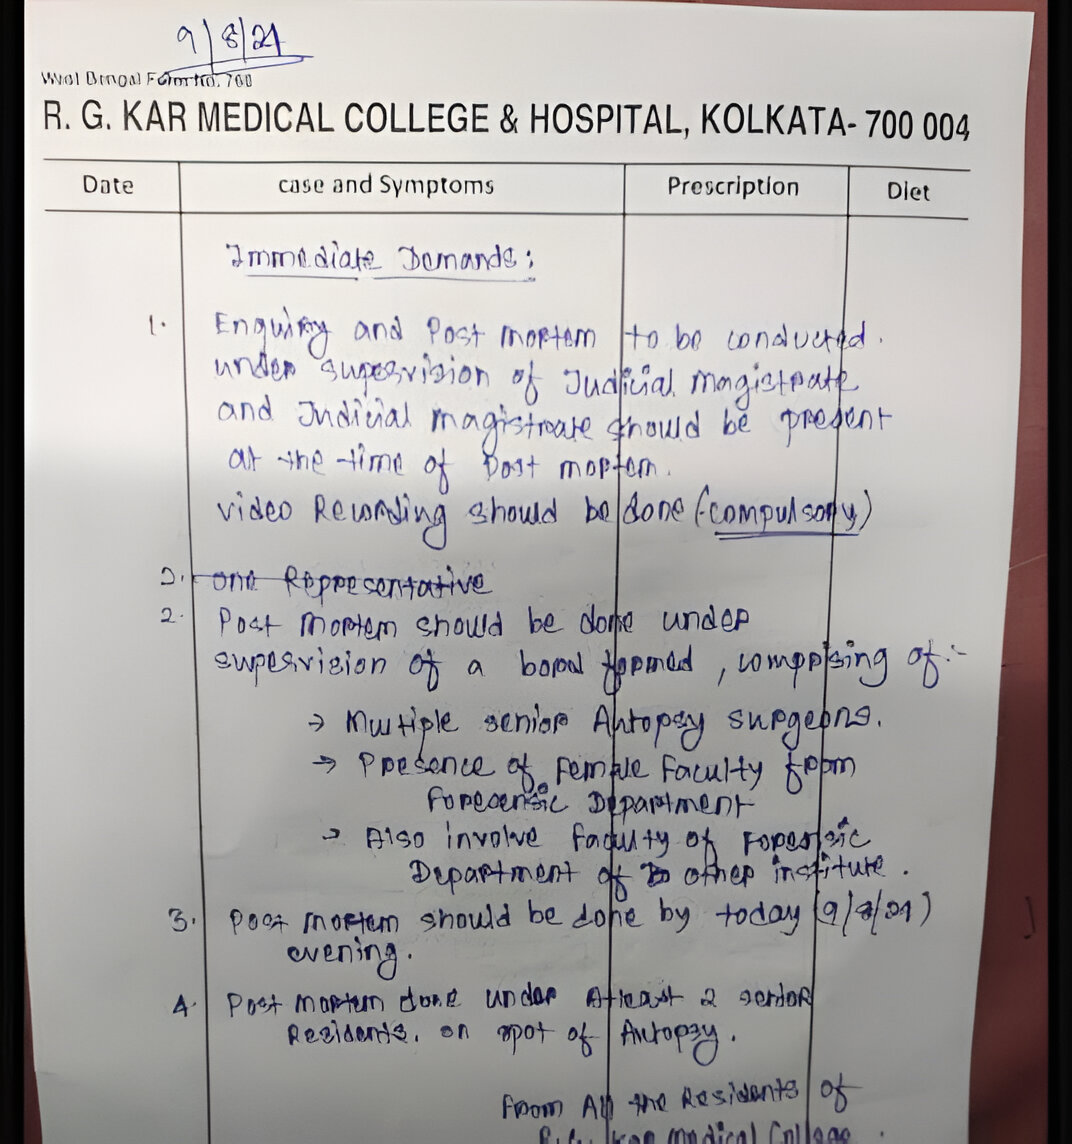 9/8/24
West Bengal Form No. 700
R. G. KAR MEDICAL COLLEGE & HOSPITAL, KOLKATA- 700 004
Date case and Symptoms Prescription Diet
Immediate Demands:
1. Enquiry and Post mortem to be conducted.
under supervision of Judicial magistrate
and Judicial magistrate should be present
at the time of post mortem.
video Recording should be done (compulsory)
2. one Representative
2. Post mortem should be done under
supervision of a board formed, comprising of:-
→ Multiple senior Autopsy surgeons.
→ Presence of Female Faculty from
Forensic Department
→ Also involve faculty of Forensic
Department of other institute.
3. Post mortem should be done by today (9/8/24)
evening.
4. Post mortem done under Atleast 2 senior
Residents. on spot of Autopsy.
From All the Residents of
R.G. Kar Medical College.